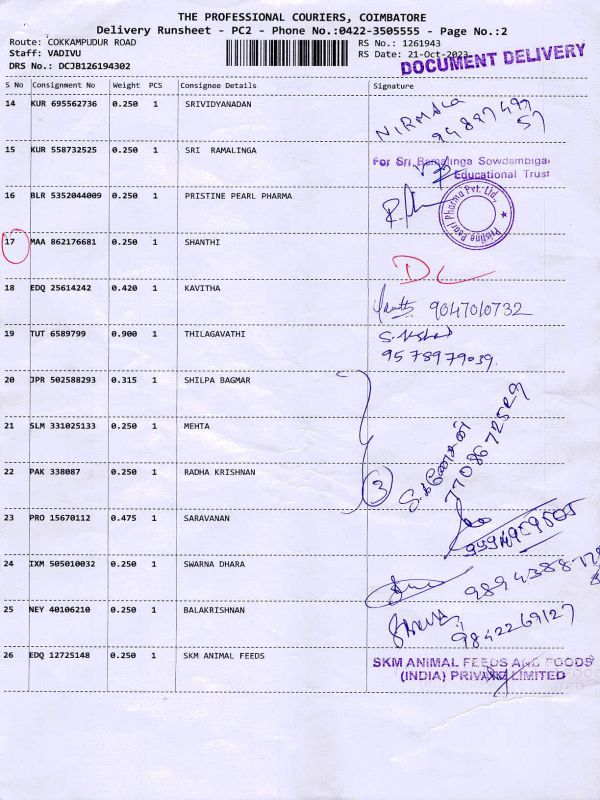 THE PROFESSIONAL COURIERS, COIMBATORE
Delivery Runsheet - PC2 - Phone No.:0422-3505555 - Page No.:2
Route: COKKAMPUDUR ROAD RS No.: 1261943
Staff: VADIVU RS Date: 21-Oct-2023
DRS No.: DCJB126194302 DOCUMENT DELIVERY
S No Consignment No Weight PCS Consignee Details Signature
14 KUR 695562736 0.250 1 SRIVIDYANADAN
NIRMALA
94887499
57
15 KUR 558732525 0.250 1 SRI RAMALINGA
For Sri Ramalinga Sowdambigai
Educational Trust
16 BLR 5352044009 0.250 1 PRISTINE PEARL PHARMA
Pristine Pearl Pharma Pvt. Ltd.,
17 MAA 862176681 0.250 1 SHANTHI
DL
18 EDQ 25614242 0.420 1 KAVITHA
9047010732
19 TUT 6589799 0.900 1 THILAGAVATHI
9578979039.
20 JPR 502588293 0.315 1 SHILPA BAGMAR
21 SLM 331025133 0.250 1 MEHTA
7708672529
22 PAK 338087 0.250 1 RADHA KRISHNAN
3
23 PRO 15670112 0.475 1 SARAVANAN
24 IXM 505010032 0.250 1 SWARNA DHARA
25 NEY 40106210 0.250 1 BALAKRISHNAN
9842269127
26 EDQ 12725148 0.250 1 SKM ANIMAL FEEDS
SKM ANIMAL FEEDS AND FOODS
(INDIA) PRIVATE LIMITED